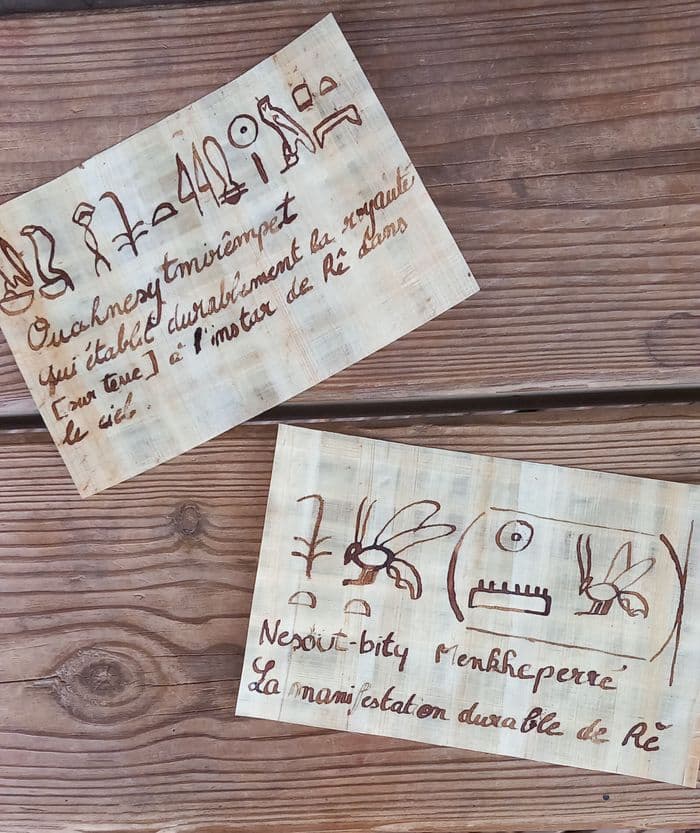 Ouahnesytmirêmpet
qui établit durablement la royauté
[sur terre] à l'instar de Rê dans
le ciel.
Nesout-bity Menkheperrê
La manifestation durable de Rê